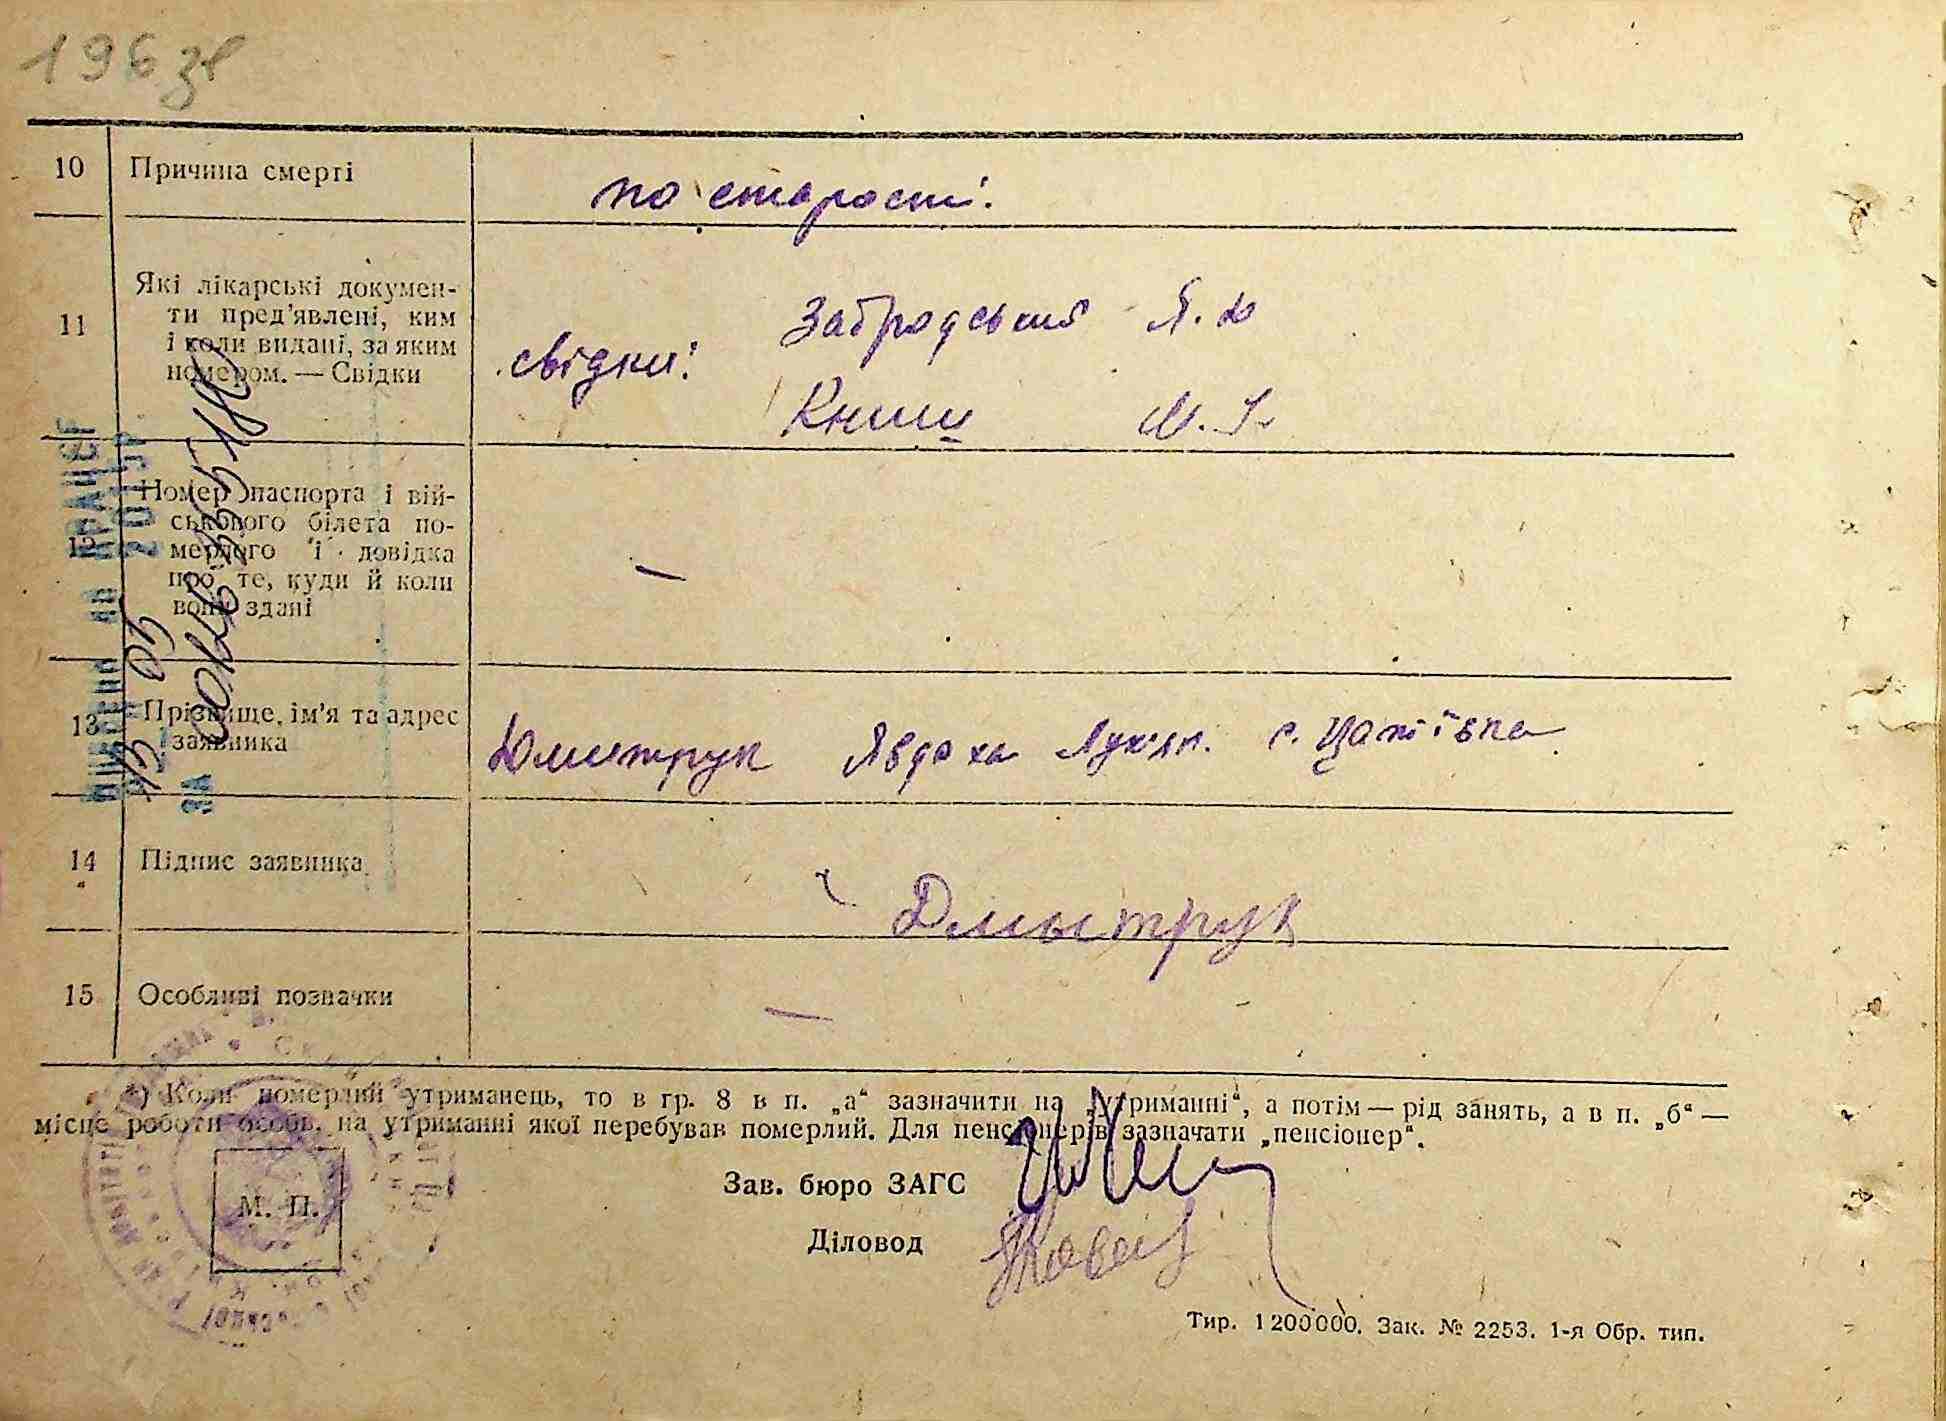 196 зв
10 Причина смерті
по старості.
11 Які лікарські докумен-
ти пред'явлені, ким
і коли видані, за яким
номером. — Свідки
свідки:
Забродський Я.
Книш М.
12 Номер паспорта і вій-
ськового білета по-
мерлого і довідка
про те, куди й коли
вони здані
—
13 Прізвище, ім'я та адрес
заявника
Дмитрук Явдоха Лук'ян. с.
14 Підпис заявника
Дмытрук
15 Особливі позначки
—
*) Коли померлий утриманець, то в гр. 8 в п. „а“ зазначити на „утриманні“, а потім — рід занять, а в п. „б“ —
місце роботи особи, на утриманні якої перебував померлий. Для пенсіонерів зазначати „пенсіонер“.
М. П.
Зав. бюро ЗАГС
Діловод
Тир. 1200000. Зак. № 2253. 1-я Обр. тип.
ЗА